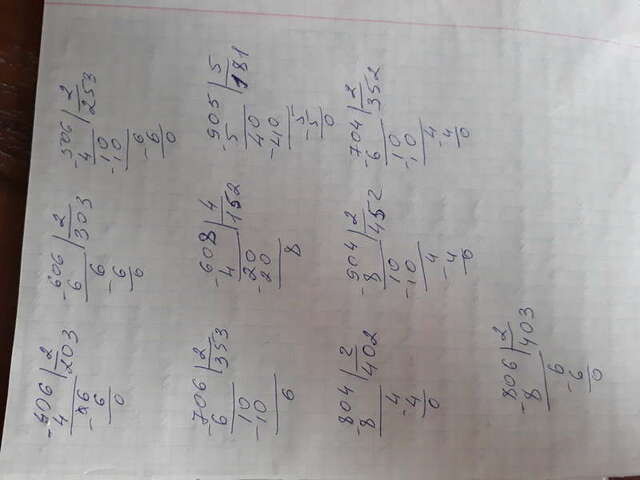 -406|2
4 |203
-6
6
0
-606|2
6 |303
6
-6
0
-506|2
4 |253
10
-10
6
-6
0
-706|2
6 |353
10
-10
6
-608|4
4 |152
20
-20
8
-905|5
5 |181
40
-40
5
-5
0
-804|2
8 |402
4
-4
0
-904|2
8 |452
10
-10
4
-4
0
-704|2
6 |352
10
-10
4
-4
0
-806|2
8 |403
6
-6
0